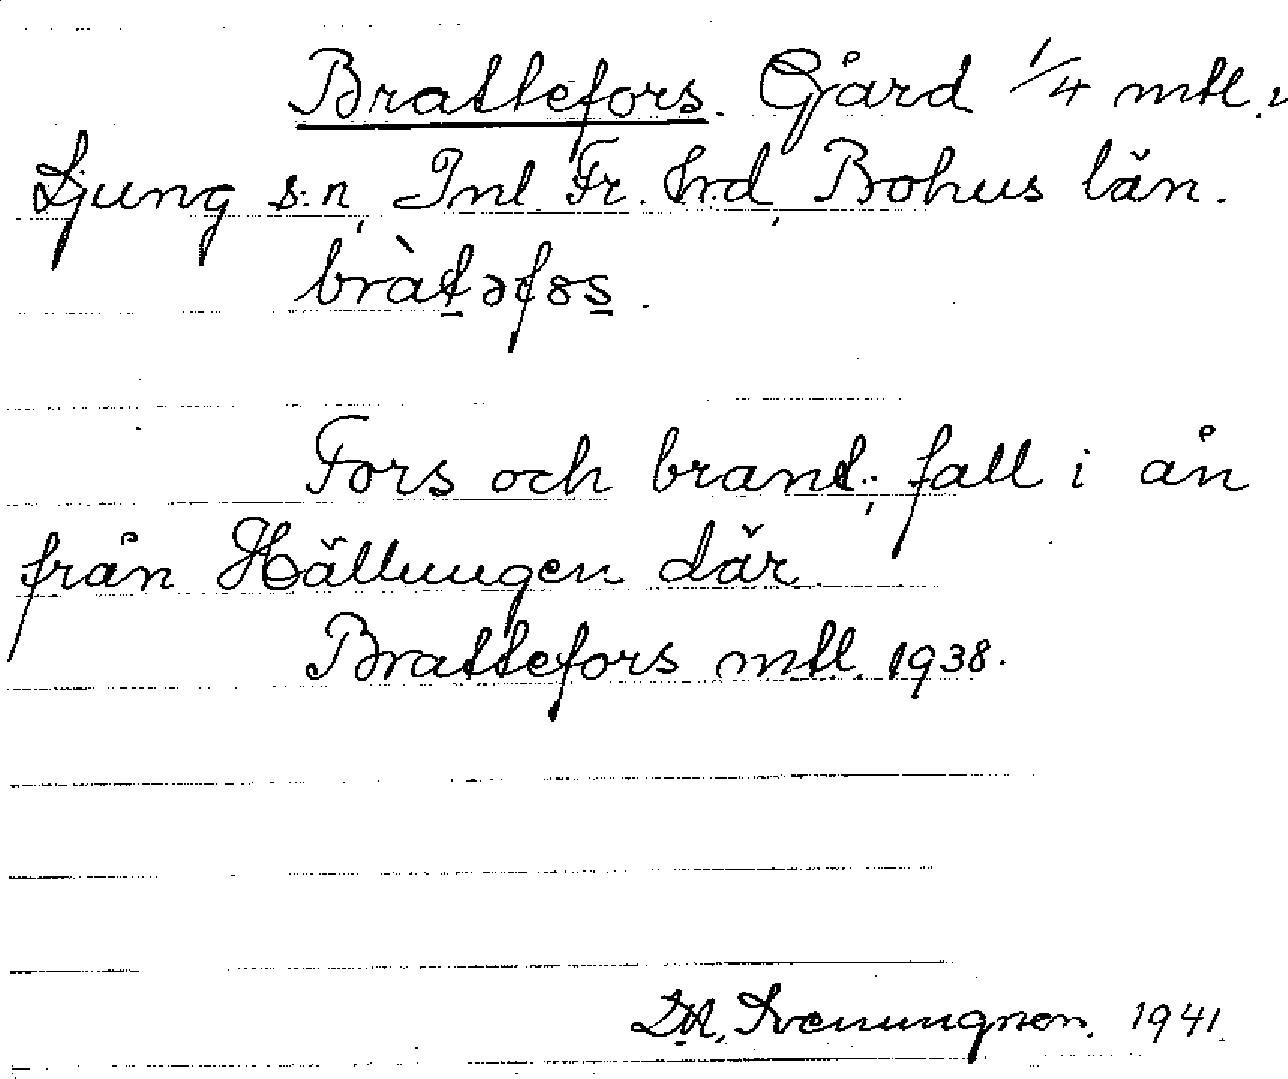 Brattefors. Gård 1/4 mtl. i
Ljung s:n, Inl. Fr. hrd, Bohus län.
bràtəfos.
Fors och brant; fall i ån
från Hällungen där.
Brattefors mtl. 1938.
Svenungson. 1941.